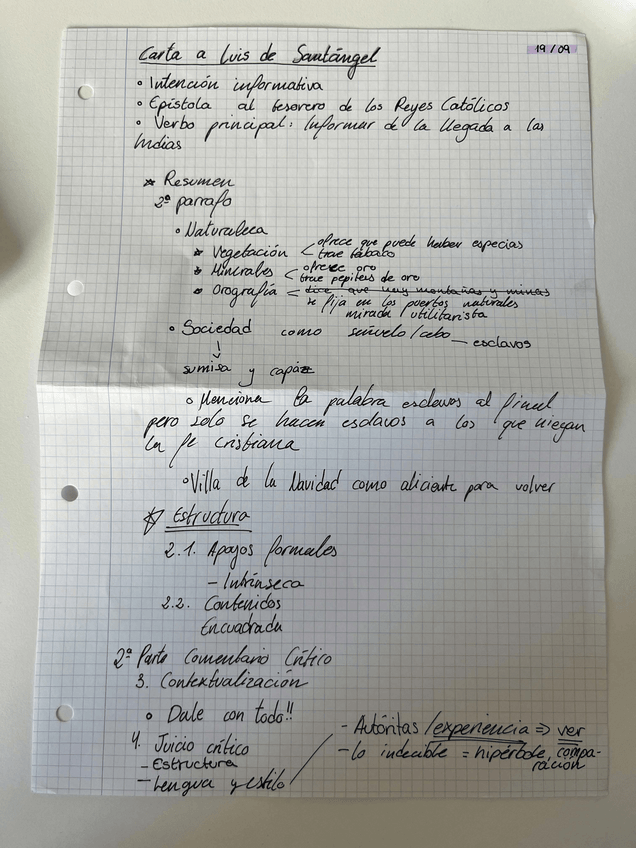 Carta a Luis de Santángel
19/09
• Intención informativa
• Epístola al tesorero de los Reyes Católicos
• Verbo principal: Informar de la llegada a las
Indias
* Resumen
2º parrafo
• Naturaleza
* Vegetación < ofrece que puede haber especias
trae tabaco
* Minerales < ofrece oro
trae pepitas de oro
* Orografía < dice que hay montañas y minas
se fija en los puertos naturales
mirada utilitarista
• Sociedad como señuelo/cebo — esclavos
↓
sumisa y capaz
• Menciona la palabra esclavos al final
pero solo se hacen esclavos a los que niegan
la fe cristiana
• Villa de la Navidad como aliciente para volver
☆ Estructura
2.1. Apoyos formales
- Intrínseca
2.2. Contenidos
Encuadrada
2ª Parte Comentario Crítico
3. Contextualización
• Dale con todo!!
4. Juicio crítico
- Estructura
- Lengua y estilo
- Autóritas /experiencia ⇒ ver
- lo indecible = hipérbole, compa-
ración